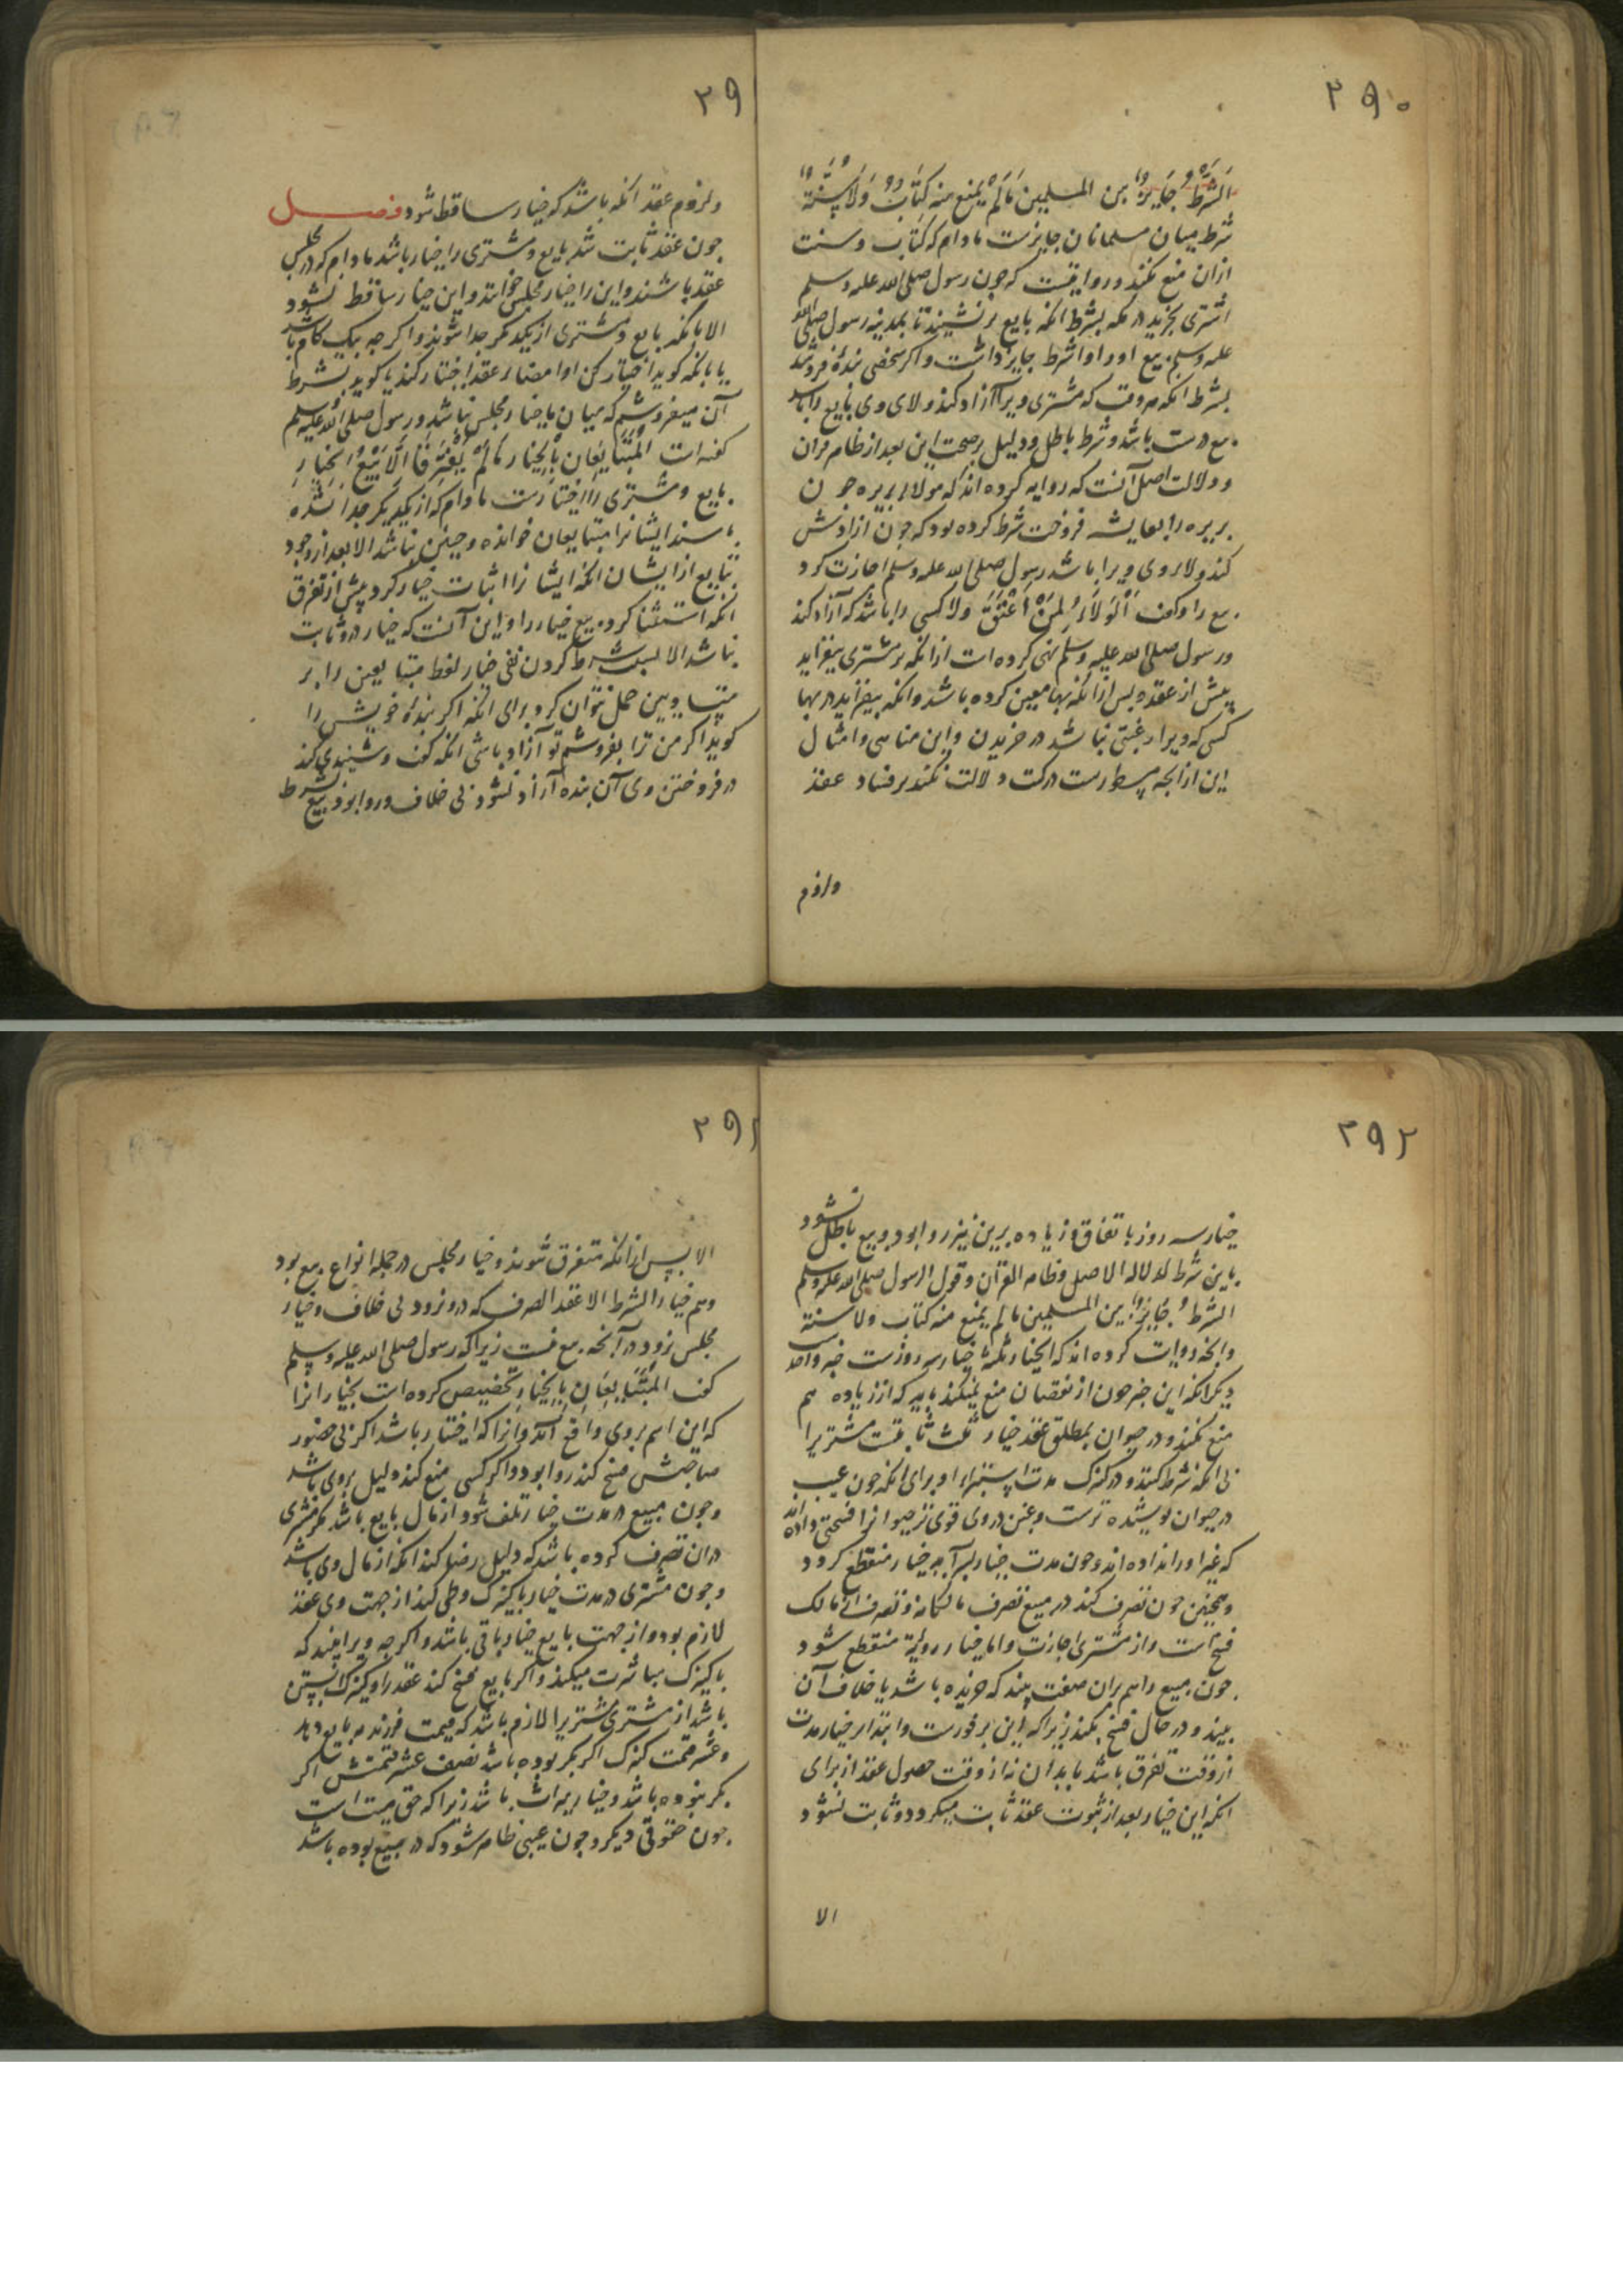 ۲۹۰
اَلشَّرْطُ جَایِزٌ بین المسلمین مَالَمْ یمنع منه کِتَابٌ وَلَا سُنَّةٌ
شرط میان مسلمانان جایزست مادام که کتاب و سنت
ازان منع نکند و روایتست که چون رسول صلی الله علیه وسلم
اشتری بخرید در مکه بشرط انکه بایع برنشیند تا بمدینه رسول صلی الله
علیه وسلم بیع او را و اشرط جایز داشت و اکر شخصی بندهٔ فروشد
بشرط انکه هر وقت که مشتری ویرا آزاد کند ولای وی بایع را باشد
بیع درست باشد و شرط باطل و دلیل بر صحت این بعد از ظاهر قران
و دلالت اصل آنست که روایه کرده اند که مولاء بریره جون
بریره را بعایشه فروخت شرط کرده بود که جون ازادش
کند ولاء وی ویرا باشد رسول صلی الله علیه وسلم اجازت کرد
بیع را و کفت اَلْوَلَاءُ لِمَنْ اَعْتَقَ ولا کسی را باشد که آزاد کند
و رسول صلی الله علیه وسلم نهی کرده است ازانکه بر مشتری بیفزاید
پیش از عقد و بس ازانکه بها معین کرده باشد و انکه بیفزاید در بها
کسی که ویرا رغبتی نباشد در خریدن و این مناهی و امثال
این از انجه مسطورست در کتب دلالت نکند بر فساد عقد
ولزوم
۲۹۱
ولزوم عقد انکه باشد که خیار ساقط شود فصل
جون عقد ثابت شد بایع و مشتری را خیار باشد مادام که در مجلس
عقد باشند و این را خیار مجلس خوانند و این خیار ساقط نشود
الا بانکه بایع و مشتری از یکدیکر جدا شوند و اکر جه بیک کام باشد
یا بانکه کوید اختیار کن او امضاء عقد اختیار کند یا کوید بشرط
آن میفروشم که میان ما خیار مجلس نباشد و رسول صلی الله علیه وسلم
کفته است اَلْمُتَبَایِعَانِ بِالْخِیَارِ مَالَمْ یَفْتَرِقَا اِلَّا بَیْعُ الْخِیَارِ
بایع و مشتری را اختیارست مادام که از یکدیکر جدا نشده
باشند ایشانرا متبایعان خوانده و جنین نباشد الا بعد از وجود
تبایع از ایشان انکه ایشانرا اثبات خیار کرد پیش از تفرق
انکه استثنا کرد بیع خیار را و این آنست که خیار در و ثابت
نباشد الا بسبب شرط کردن نفی خیار لفظ متبایعین را بر
متساومین حمل نتوان کرد برای انکه اکر بندهٔ خویش را
کوید اکر من ترا بفروشم تو آزاد باشی انکه کفت و شنیدی کند
در فروختن وی آن بنده آزاد نشود بی خلاف و روا بود بیع بشرط
۲۹۲
خیار سه روز باتفاق و زیاده برین نیز روا بود و بیع باطل نشود
باین شرط لدلالة الاصل و ظاهر القرآن و قول الرسول صلی الله علیه وسلم
الشرطُ جَایِزٌ بین المسلمین مالم یمنع منه کتاب ولا سنة
و انجه روایت کرده اند که الخیار ثلثة خیار سه روزست خبر واحد
دیکر انکه این خبر جون از نقصان منع نمیکند باید که از زیاده هم
منع نکند و در حیوان بمطلق عقد خیار ثلث ثابتست مشتریرا
بی انکه شرط کنند و در کنیزک مدت استبراء او برای انکه جون عیب
در حیوان پوشیده ترست و غبن در وی قوی تر حیوانرا فسحتی داده اند
که غیر او را نداده اند و جون مدت خیار بسر آید خیار منقطع کردد
و همجنین جون تصرف کند در مبیع تصرف مالکانه و تصرف از مالک
فسخ است و از مشتری اجازت و اما خیار رویة منقطع شود
جون مبیع را هم بران صفت بیند که خریده باشد یا خلاف آن
بیند و در حال فسخ نکند زیرا که این بر فورست و ابتداء خیار مدت
از وقت تفرق باشد بابدان نه از وقت حصول عقد از برای
انکه این خیار بعد از ثبوت عقد ثابت میکردد و ثابت نشود
الا
۲۹۳
الا بس ازانکه متفرق شوند و خیار مجلس در جمله انواع بیع بود
وهم خیار الشرط الا عقد الصرف که در و نرود بی خلاف و خیار
مجلس نرود در آنجه بیع نیست زیرا که رسول صلی الله علیه وسلم
کفت اَلْمُتَبَایِعَانِ بِالْخِیَارِ تخصیص کرده است بخیار انرا
که این اسم بر وی واقع آید و انرا که اختیار باشد اکر بی حضور
صاحبش فسخ کند روا بود و اکر کسی منع کند دلیل بر وی باشد
و جون مبیع در مدت خیار تلف شود از مال بایع باشد مکر مشتری
دران تصرف کرده باشد که دلیل رضا کند انکه از مال وی باشد
و جون مشتری در مدت خیار با کنیزک وطی کند از جهت وی عقد
لازم بود و از جهت بایع خیار باقی باشد و اکر جه ویرا بیند که
با کنیزک مباشرت میکند و اکر بایع فسخ کند عقد را و کنیزک آبستن
باشد از مشتری مشتریرا لازم باشد که قیمت فرزند ببایع دهد
و عشر قیمت کنیزک اکر بکر بوده باشد نصف عشر قیمتش اکر
بکر نبوده باشد و خیار میراث باشد زیرا که حق میت است
جون حقوقی دیکر و جون عیبی ظاهر شود که در مبیع بوده باشد